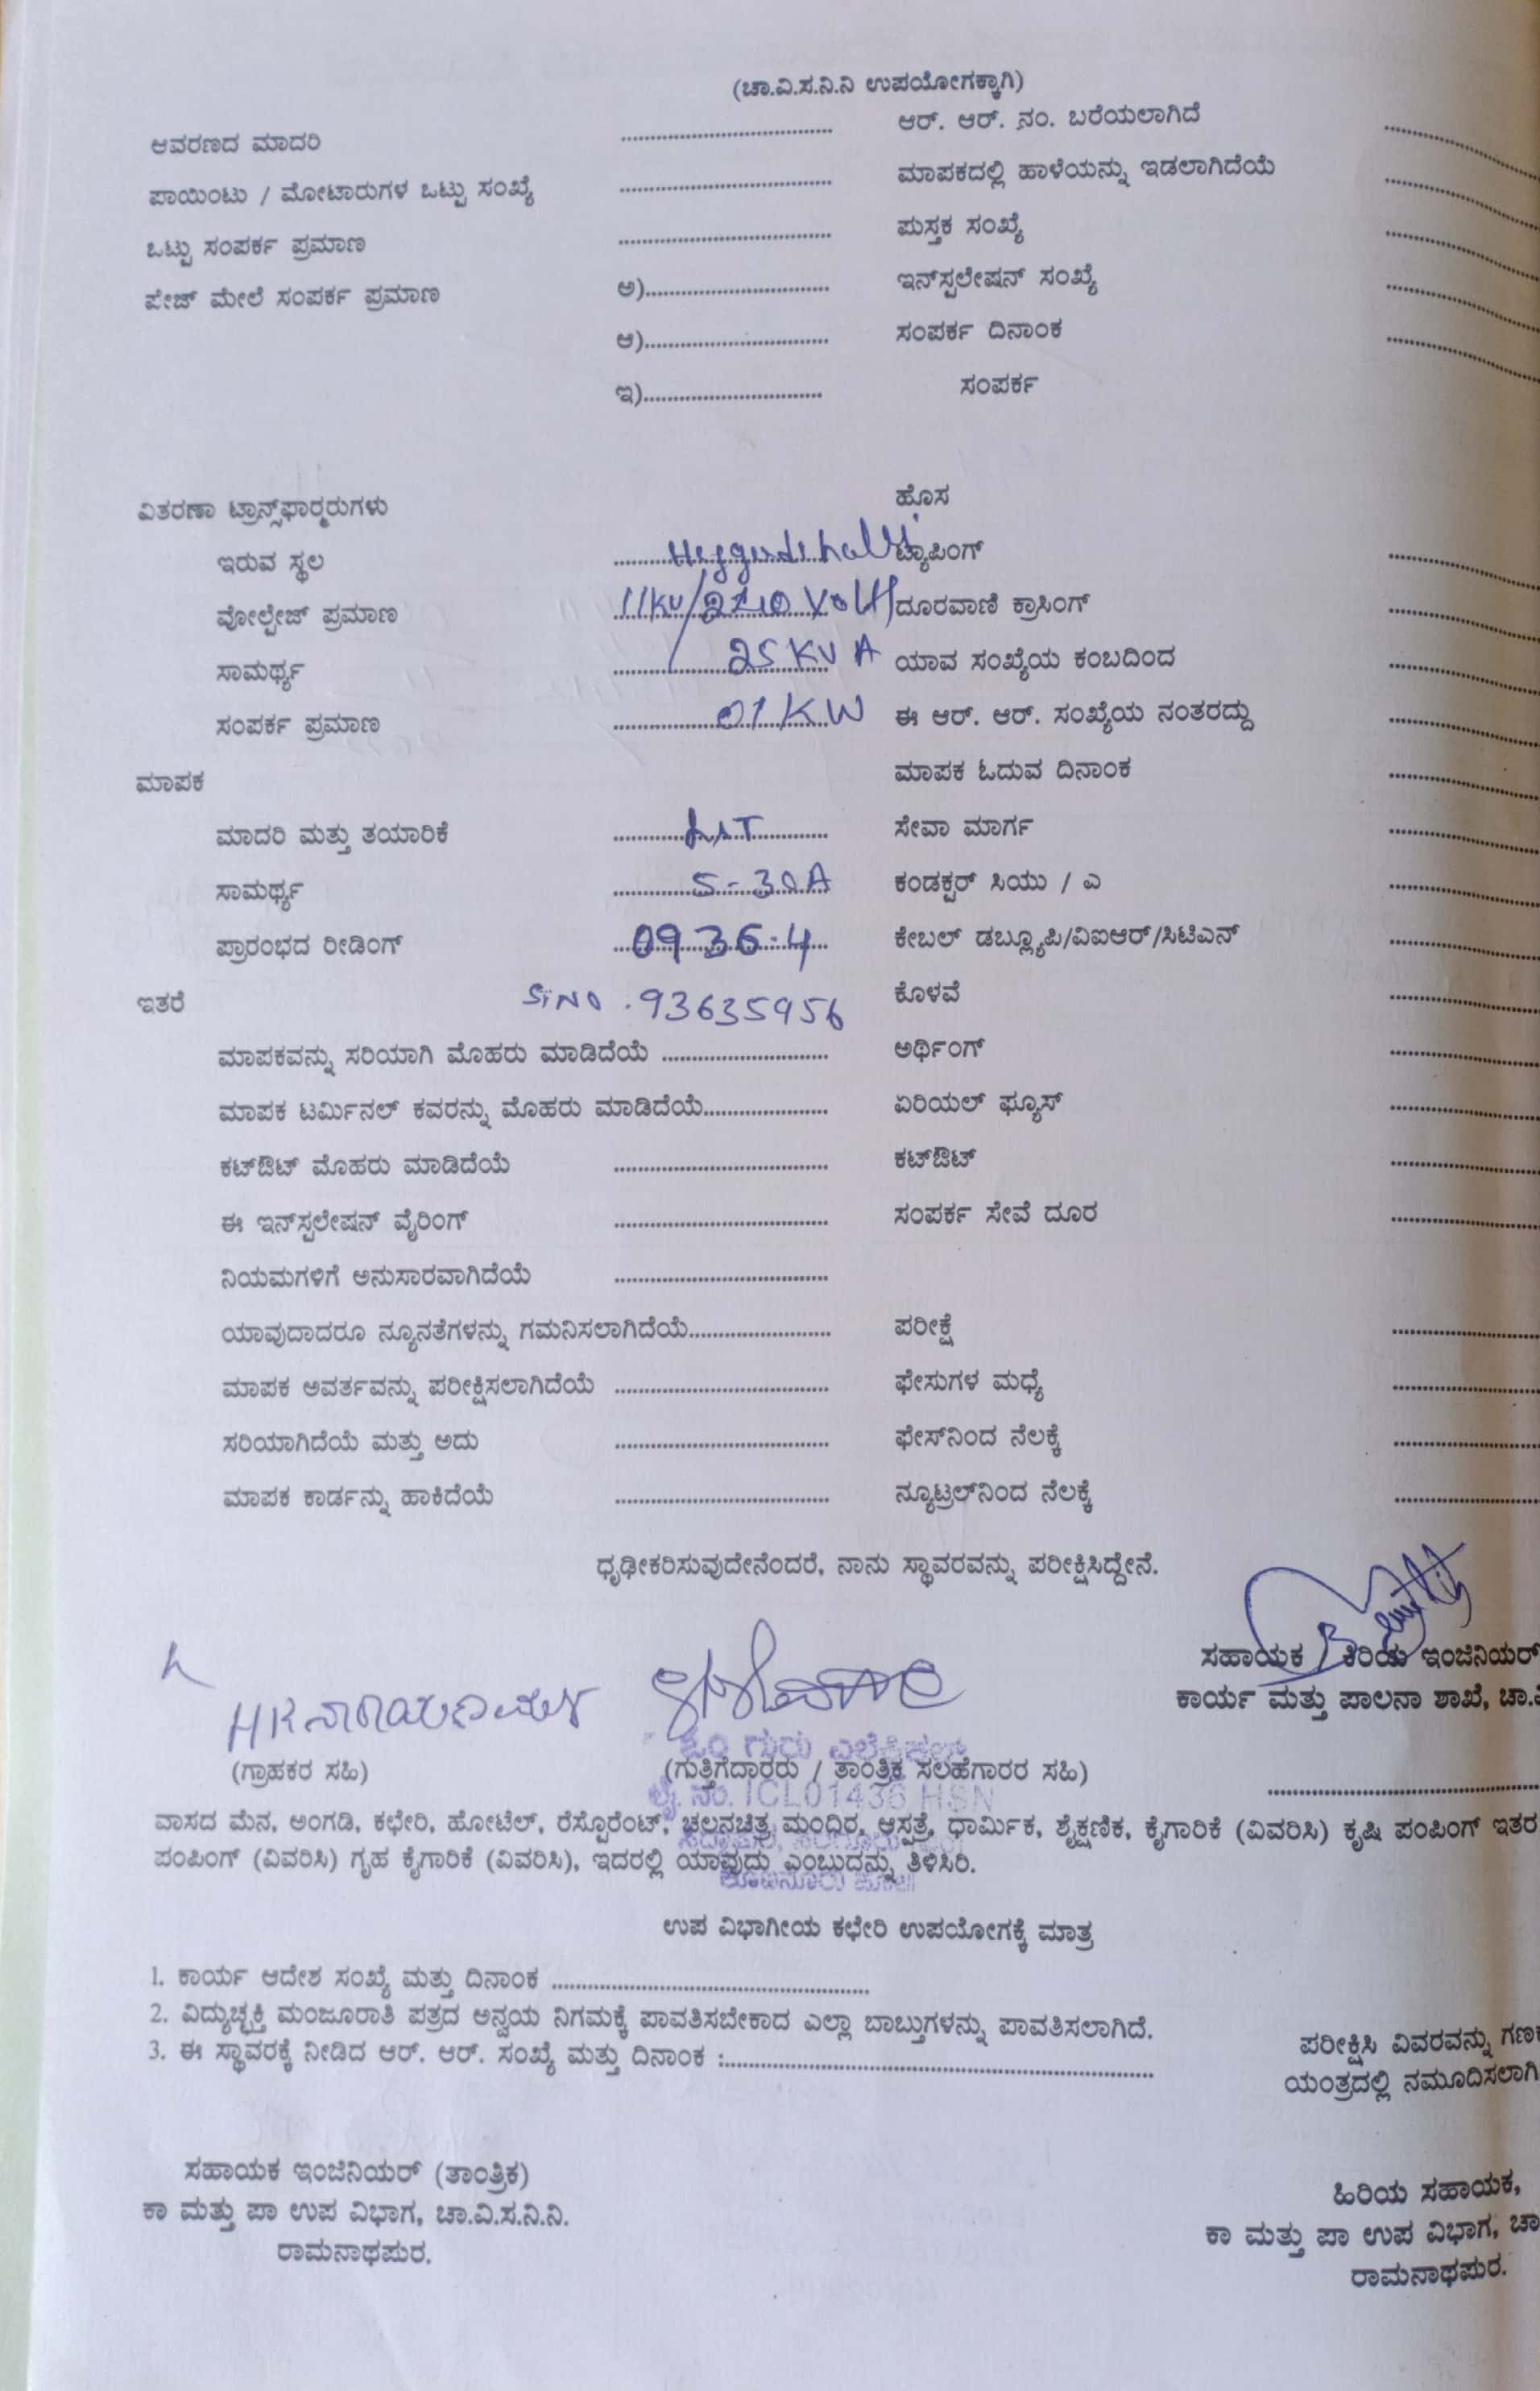 (ಚಾ.ವಿ.ಸ.ನಿ.ನಿ ಉಪಯೋಗಕ್ಕಾಗಿ)
ಆವರಣದ ಮಾದರಿ .................... ಆರ್. ಆರ್. ನಂ. ಬರೆಯಲಾಗಿದೆ ....................
ಪಾಯಿಂಟು / ಮೋಟಾರುಗಳ ಒಟ್ಟು ಸಂಖ್ಯೆ .................... ಮಾಪಕದಲ್ಲಿ ಹಾಳೆಯನ್ನು ಇಡಲಾಗಿದೆಯೆ ....................
ಒಟ್ಟು ಸಂಪರ್ಕ ಪ್ರಮಾಣ .................... ಪುಸ್ತಕ ಸಂಖ್ಯೆ ....................
ಪೇಜ್ ಮೇಲೆ ಸಂಪರ್ಕ ಪ್ರಮಾಣ ಅ).................... ಇನ್‌ಸ್ಪಲೇಷನ್ ಸಂಖ್ಯೆ ....................
ಆ).................... ಸಂಪರ್ಕ ದಿನಾಂಕ ....................
ಇ).................... ಸಂಪರ್ಕ
ವಿತರಣಾ ಟ್ರಾನ್ಸ್‌ಫಾರ್‍ಮರುಗಳು ಹೊಸ
ಇರುವ ಸ್ಥಳ ಟ್ಯಾಪಿಂಗ್ ....................
ವೋಲ್ಟೇಜ್ ಪ್ರಮಾಣ 11KV/ ದೂರವಾಣಿ ಕ್ರಾಸಿಂಗ್ ....................
ಸಾಮರ್ಥ್ಯ 25 KVA ಯಾವ ಸಂಖ್ಯೆಯ ಕಂಬದಿಂದ ....................
ಸಂಪರ್ಕ ಪ್ರಮಾಣ 01 KW ಈ ಆರ್. ಆರ್. ಸಂಖ್ಯೆಯ ನಂತರದ್ದು ....................
ಮಾಪಕ ಮಾಪಕ ಓದುವ ದಿನಾಂಕ ....................
ಮಾದರಿ ಮತ್ತು ತಯಾರಿಕೆ ಸೇವಾ ಮಾರ್ಗ ....................
ಸಾಮರ್ಥ್ಯ 5-30A ಕಂಡಕ್ಟರ್ ಸಿಯು / ಎ ....................
ಪ್ರಾರಂಭದ ರೀಡಿಂಗ್ 0936.4 ಕೇಬಲ್ ಡಬ್ಲ್ಯೂಪಿ/ವಿಐಆರ್/ಸಿಟಿಎನ್ ....................
ಇತರೆ SlNo. 93635956 ಕೊಳವೆ ....................
ಮಾಪಕವನ್ನು ಸರಿಯಾಗಿ ಮೊಹರು ಮಾಡಿದೆಯೆ .................... ಅರ್ಥಿಂಗ್ ....................
ಮಾಪಕ ಟರ್ಮಿನಲ್ ಕವರನ್ನು ಮೊಹರು ಮಾಡಿದೆಯೆ.................... ಏರಿಯಲ್ ಫ್ಯೂಸ್ ....................
ಕಟ್‌ಔಟ್ ಮೊಹರು ಮಾಡಿದೆಯೆ .................... ಕಟ್‌ಔಟ್ ....................
ಈ ಇನ್‌ಸ್ಪಲೇಷನ್ ವೈರಿಂಗ್ .................... ಸಂಪರ್ಕ ಸೇವೆ ದೂರ ....................
ನಿಯಮಗಳಿಗೆ ಅನುಸಾರವಾಗಿದೆಯೆ ....................
ಯಾವುದಾದರೂ ನ್ಯೂನತೆಗಳನ್ನು ಗಮನಿಸಲಾಗಿದೆಯೆ.................... ಪರೀಕ್ಷೆ ....................
ಮಾಪಕ ಅವರ್ತವನ್ನು ಪರೀಕ್ಷಿಸಲಾಗಿದೆಯೆ .................... ಫೇಸುಗಳ ಮಧ್ಯೆ ....................
ಸರಿಯಾಗಿದೆಯೆ ಮತ್ತು ಅದು .................... ಫೇಸ್‌ನಿಂದ ನೆಲಕ್ಕೆ ....................
ಮಾಪಕ ಕಾರ್ಡನ್ನು ಹಾಕಿದೆಯೆ .................... ನ್ಯೂಟ್ರಲ್‌ನಿಂದ ನೆಲಕ್ಕೆ ....................
ಧೃಢೀಕರಿಸುವುದೇನೆಂದರೆ, ನಾನು ಸ್ಥಾವರವನ್ನು ಪರೀಕ್ಷಿಸಿದ್ದೇನೆ.
ಸಹಾಯಕ / ಕಿರಿಯ ಇಂಜಿನಿಯರ್
ಕಾರ್ಯ ಮತ್ತು ಪಾಲನಾ ಶಾಖೆ, ಚಾ.
ಓಂ ಗುರು ಎಲೆಕ್ಟ್ರಿಕಲ್
(ಗ್ರಾಹಕರ ಸಹಿ) (ಗುತ್ತಿಗೆದಾರರು / ತಾಂತ್ರಿಕ ಸಲಹೆಗಾರರ ಸಹಿ) ....................
ಲೈ. ನಂ. ICL01436 HSN
ವಾಸದ ಮೆನ, ಅಂಗಡಿ, ಕಛೇರಿ, ಹೋಟೆಲ್, ರೆಸ್ಟೊರೆಂಟ್, ಚಲನಚಿತ್ರ ಮಂದಿರ, ಆಸ್ಪತ್ರೆ, ಧಾರ್ಮಿಕ, ಶೈಕ್ಷಣಿಕ, ಕೈಗಾರಿಕೆ (ವಿವರಿಸಿ) ಕೃಷಿ ಪಂಪಿಂಗ್ ಇತರ
ಪಂಪಿಂಗ್ (ವಿವರಿಸಿ) ಗೃಹ ಕೈಗಾರಿಕೆ (ವಿವರಿಸಿ), ಇದರಲ್ಲಿ ಯಾವುದು ಎಂಬುದನ್ನು ತಿಳಿಸಿರಿ.
ಉಪ ವಿಭಾಗೀಯ ಕಛೇರಿ ಉಪಯೋಗಕ್ಕೆ ಮಾತ್ರ
1. ಕಾರ್ಯ ಆದೇಶ ಸಂಖ್ಯೆ ಮತ್ತು ದಿನಾಂಕ ....................
2. ವಿದ್ಯುಚ್ಛಕ್ತಿ ಮಂಜೂರಾತಿ ಪತ್ರದ ಅನ್ವಯ ನಿಗಮಕ್ಕೆ ಪಾವತಿಸಬೇಕಾದ ಎಲ್ಲಾ ಬಾಬ್ತುಗಳನ್ನು ಪಾವತಿಸಲಾಗಿದೆ.
3. ಈ ಸ್ಥಾವರಕ್ಕೆ ನೀಡಿದ ಆರ್. ಆರ್. ಸಂಖ್ಯೆ ಮತ್ತು ದಿನಾಂಕ :....................
ಪರೀಕ್ಷಿಸಿ ವಿವರವನ್ನು ಗಣಕ
ಯಂತ್ರದಲ್ಲಿ ನಮೂದಿಸಲಾಗಿ
ಸಹಾಯಕ ಇಂಜಿನಿಯರ್ (ತಾಂತ್ರಿಕ)
ಕಾ ಮತ್ತು ಪಾ ಉಪ ವಿಭಾಗ, ಚಾ.ವಿ.ಸ.ನಿ.ನಿ.
ರಾಮನಾಥಪುರ.
ಹಿರಿಯ ಸಹಾಯಕ,
ಕಾ ಮತ್ತು ಪಾ ಉಪ ವಿಭಾಗ, ಚಾ
ರಾಮನಾಥಪುರ.